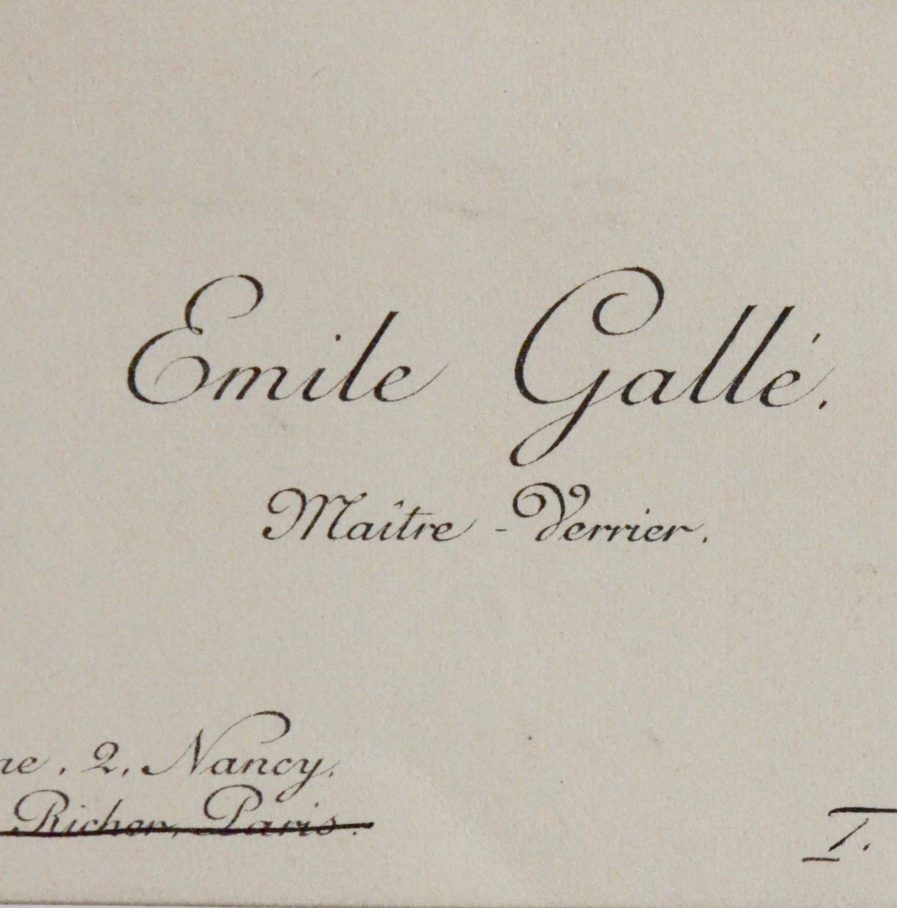 Emile Gallé.
Maître-Verrier.
ne, 2, Nancy.
Richer, Paris.
T.